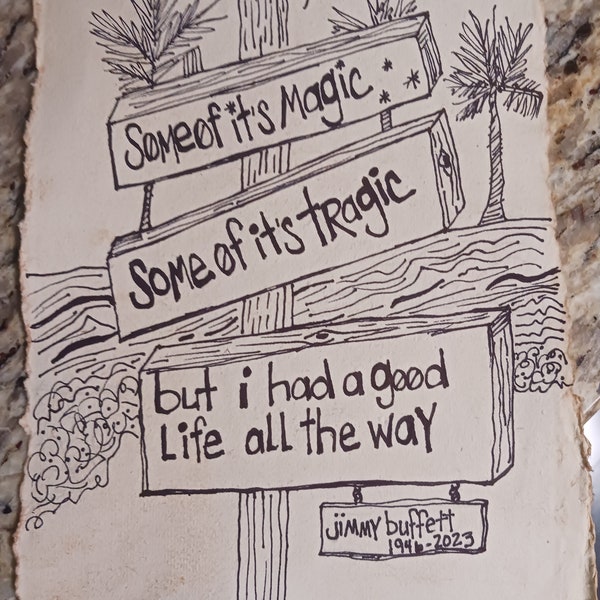 Some of it's Magic
Some of it's tRagic
but i had a good
Life all the way
jiMMY buffett
1946-2023